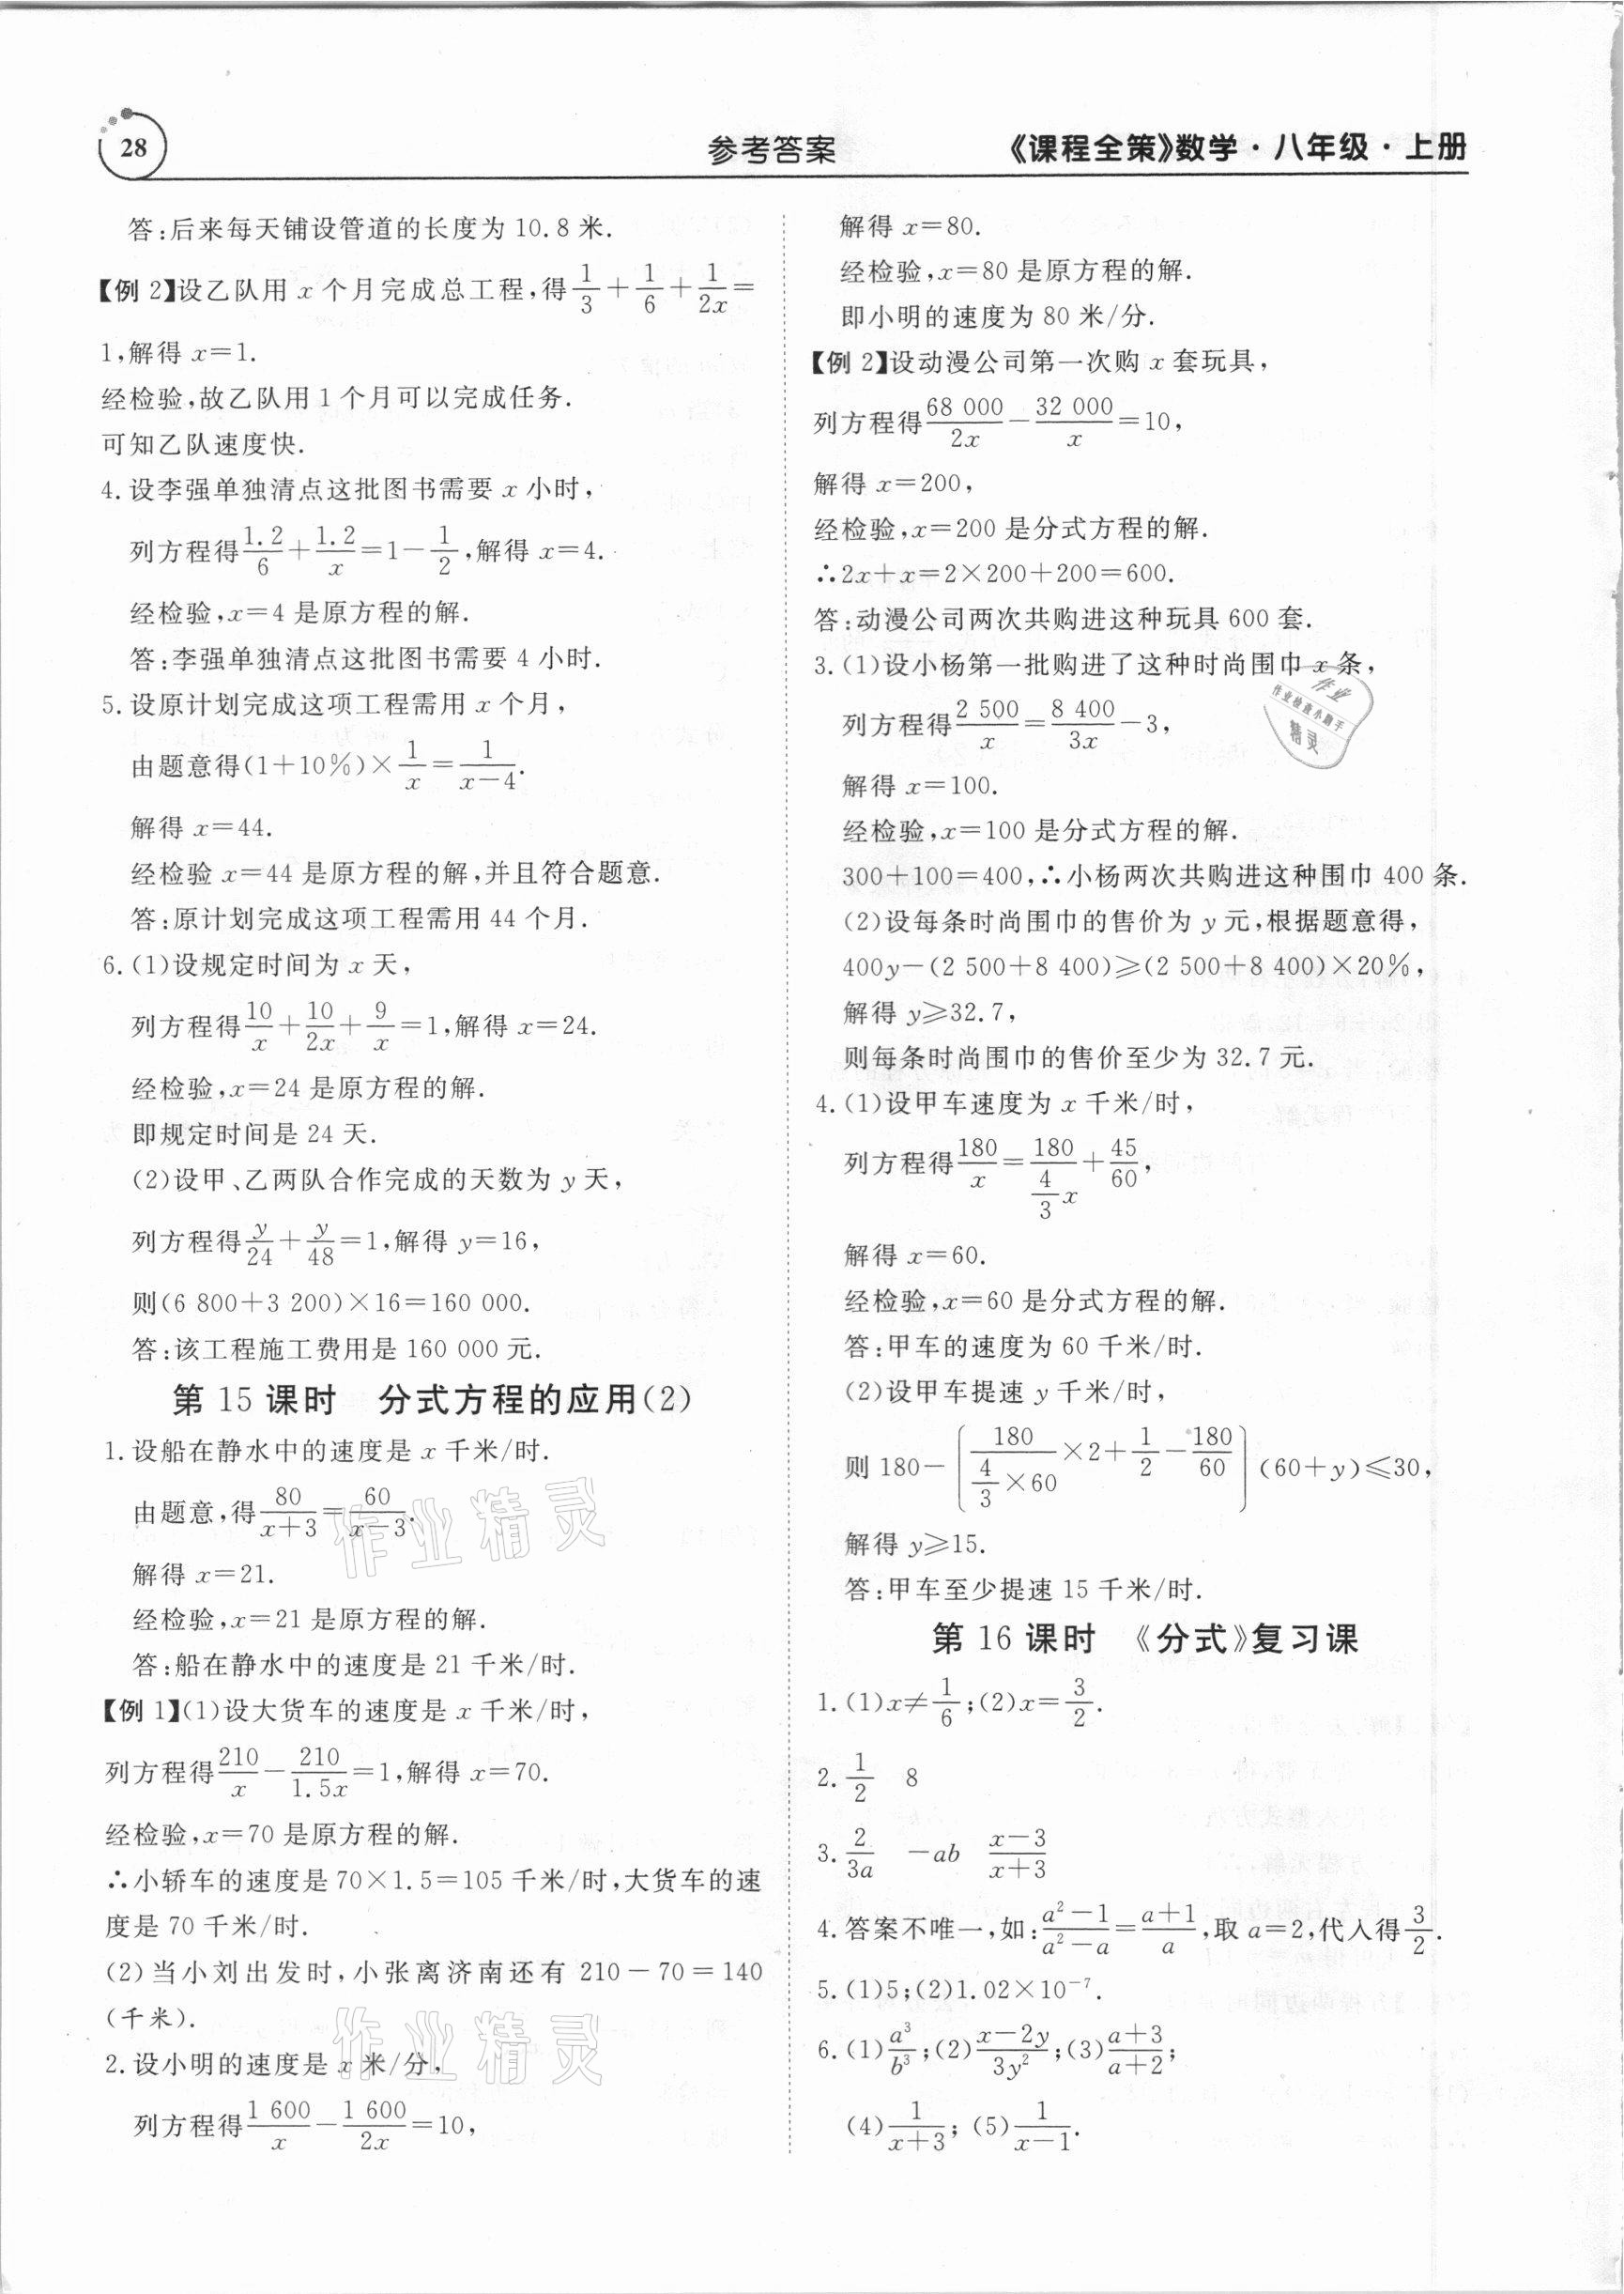 28
参考答案
《课程全策》数学·八年级·上册
答:后来每天铺设管道的长度为 10.8 米.
【例 2】设乙队用 x 个月完成总工程,得 1/3+1/6+1/2x=
1,解得 x=1.
经检验,故乙队用 1 个月可以完成任务.
可知乙队速度快.
4. 设李强单独清点这批图书需要 x 小时,
列方程得 1.2/6+1.2/x=1-1/2,解得 x=4.
经检验,x=4 是原方程的解.
答:李强单独清点这批图书需要 4 小时.
5. 设原计划完成这项工程需用 x 个月,
由题意得(1+10%)×1/x=1/(x-4).
解得 x=44.
经检验 x=44 是原方程的解,并且符合题意.
答:原计划完成这项工程需用 44 个月.
6. (1)设规定时间为 x 天,
列方程得 10/x+10/2x+9/x=1,解得 x=24.
经检验,x=24 是原方程的解.
即规定时间是 24 天.
(2)设甲、乙两队合作完成的天数为 y 天,
列方程得 y/24+y/48=1,解得 y=16,
则(6 800+3 200)×16=160 000.
答:该工程施工费用是 160 000 元.
第 15 课时 分式方程的应用(2)
1. 设船在静水中的速度是 x 千米/时.
由题意,得 80/(x+3)=60/(x-3).
解得 x=21.
经检验,x=21 是原方程的解.
答:船在静水中的速度是 21 千米/时.
【例 1】(1)设大货车的速度是 x 千米/时,
列方程得 210/x-210/1.5x=1,解得 x=70.
经检验,x=70 是原方程的解.
∴小轿车的速度是 70×1.5=105 千米/时,大货车的速
度是 70 千米/时.
(2)当小刘出发时,小张离济南还有 210-70=140
(千米).
2. 设小明的速度是 x 米/分,
列方程得 1 600/x-1 600/2x=10,
解得 x=80.
经检验,x=80 是原方程的解.
即小明的速度为 80 米/分.
【例 2】设动漫公司第一次购 x 套玩具,
列方程得 68 000/2x-32 000/x=10,
解得 x=200,
经检验,x=200 是分式方程的解.
∴2x+x=2×200+200=600.
答:动漫公司两次共购进这种玩具 600 套.
3. (1)设小杨第一批购进了这种时尚围巾 x 条,
列方程得 2 500/x=8 400/3x-3,
解得 x=100.
经检验,x=100 是分式方程的解.
300+100=400,∴小杨两次共购进这种围巾 400 条.
(2)设每条时尚围巾的售价为 y 元,根据题意得,
400y-(2 500+8 400)≥(2 500+8 400)×20%,
解得 y≥32.7,
则每条时尚围巾的售价至少为 32.7 元.
4. (1)设甲车速度为 x 千米/时,
列方程得 180/x=180/(4/3 x)+45/60,
解得 x=60.
经检验,x=60 是分式方程的解.
答:甲车的速度为 60 千米/时.
(2)设甲车提速 y 千米/时,
则 180-(180/(4/3×60)×2+1/2-180/60)(60+y)≤30,
解得 y≥15.
答:甲车至少提速 15 千米/时.
第 16 课时 《分式》复习课
1. (1)x≠1/6;(2)x=3/2.
2. 1/2 8
3. 2/3a -ab (x-3)/(x+3)
4. 答案不唯一,如:(a²-1)/(a²-a)=(a+1)/a,取 a=2,代入得 3/2.
5. (1)5;(2)1.02×10⁻⁷.
6. (1)a³/b³;(2)(x-2y)/3y²;(3)(a+3)/(a+2);
(4)1/(x+3);(5)1/(x-1).
作业
作业检查小助手
精灵
作业精灵
作业精灵